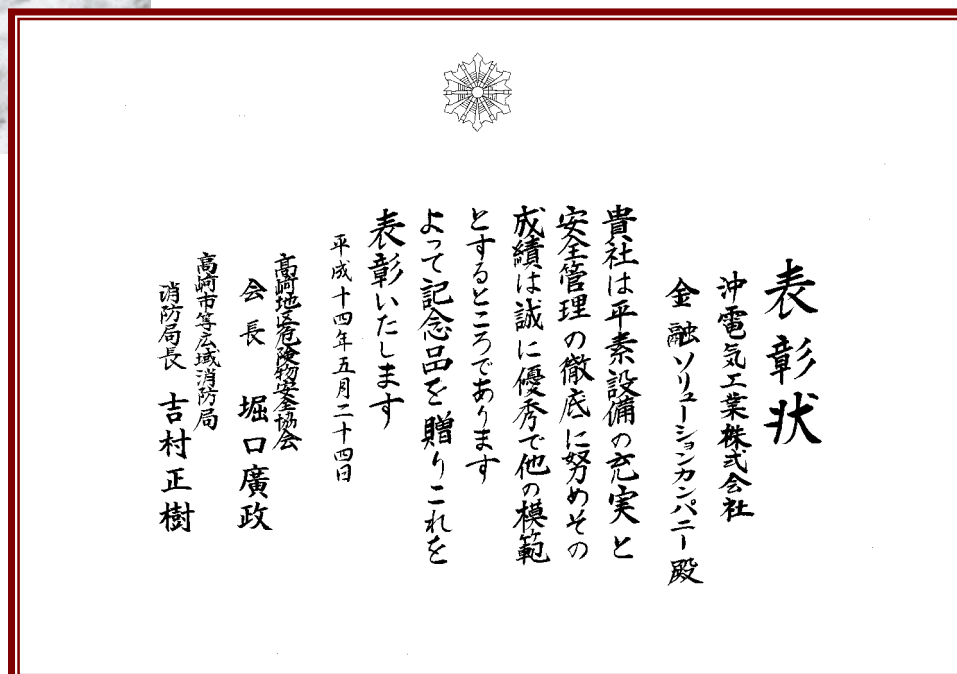 表彰状
沖電気工業株式会社
金融ソリューションカンパニー殿
貴社は平素設備の充実と
安全管理の徹底に努めその
成績は誠に優秀で他の模範
とするところであります
よって記念品を贈りこれを
表彰いたします
平成十四年五月二十四日
高崎地区危険物安全協会
会長 堀口廣政
高崎市等広域消防局
消防局長 吉村正樹